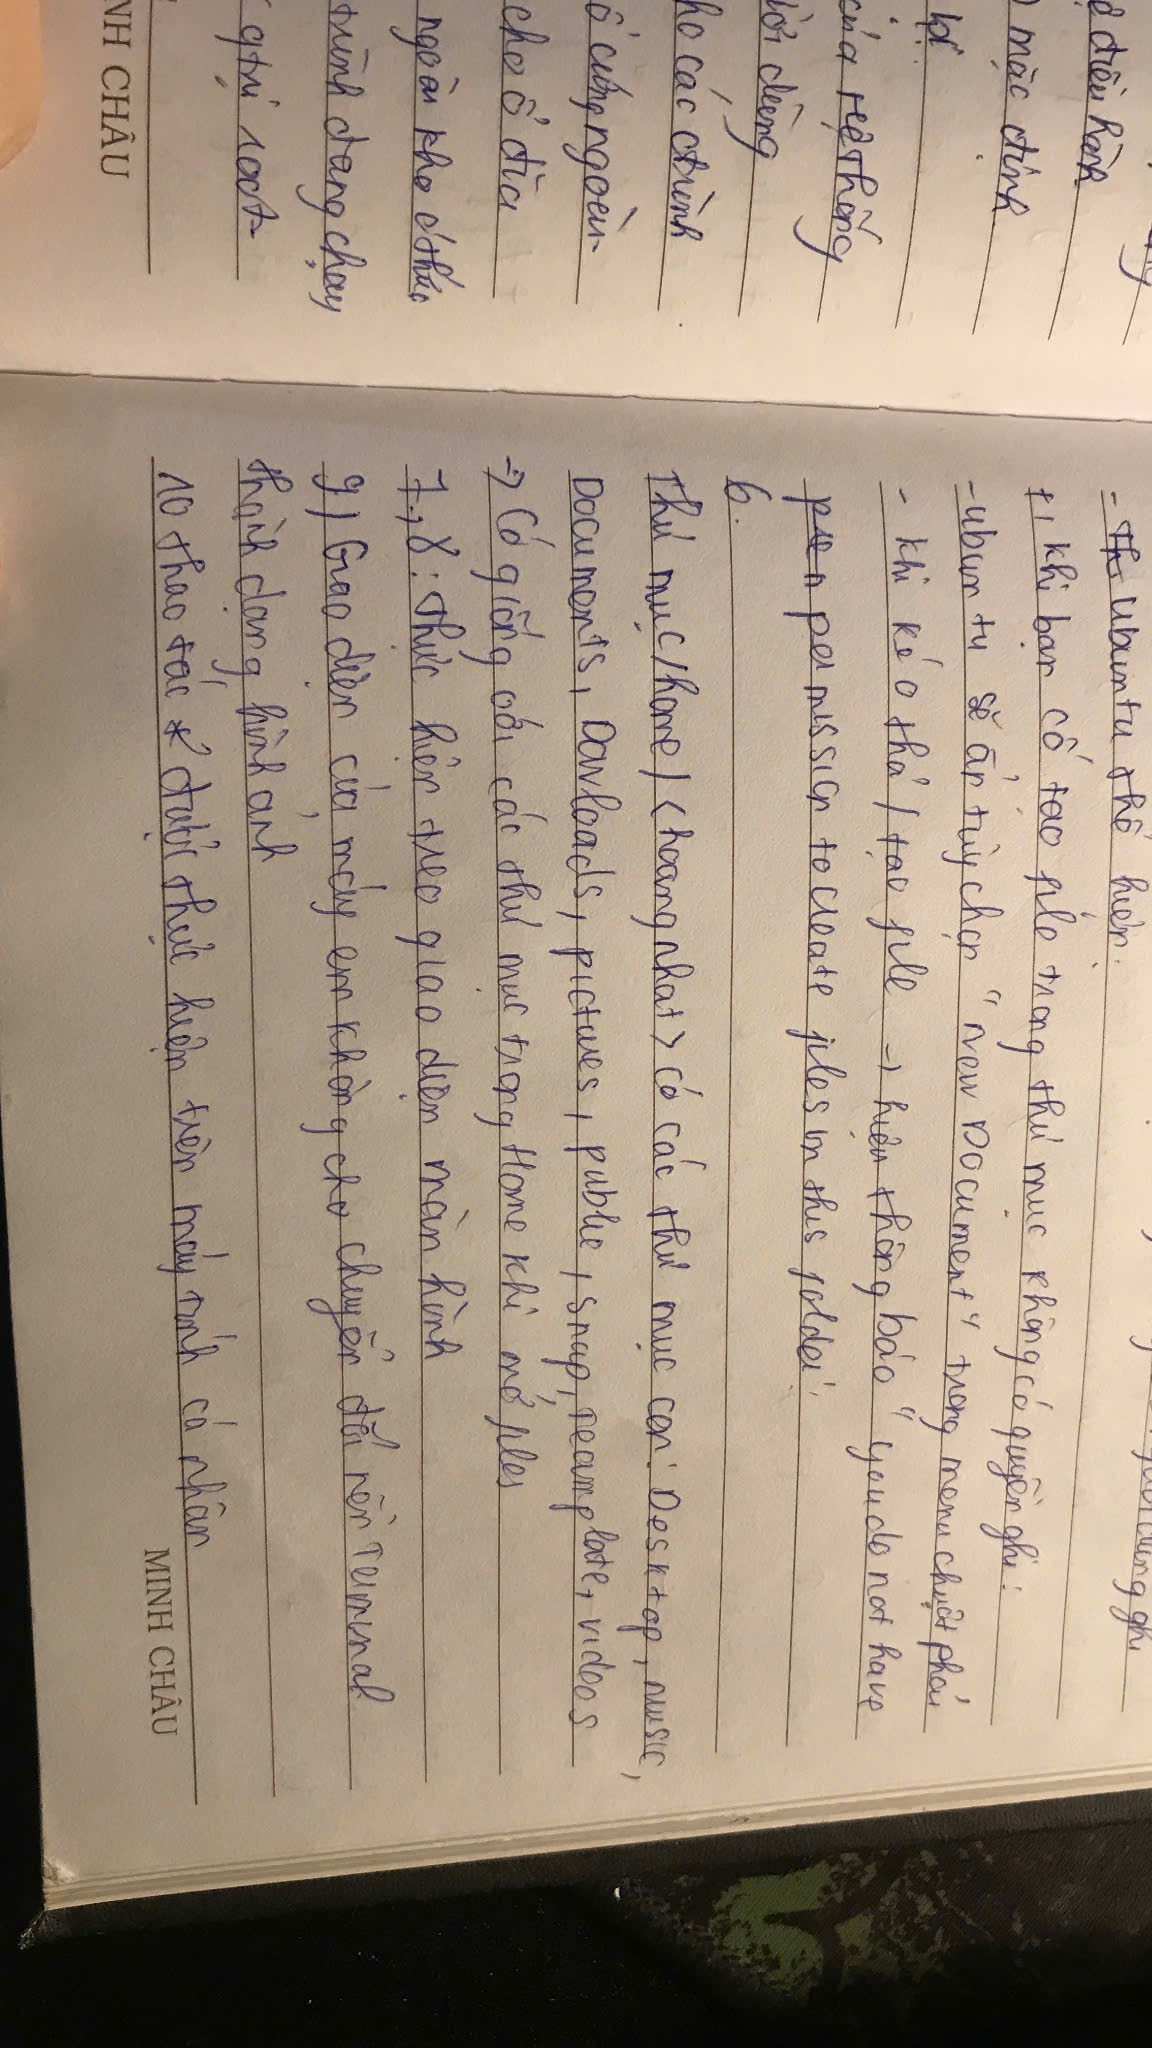 ợ điều hành
mặc định
của hệ thống
ười dùng
ho các trình
ổ cứng ngoài
cho ổ đĩa
ngoài kho ở thư
trình đang chạy
qtrị root
NH CHÂU
- Th ubuntu thể hiện.
+, khi bạn cố tạo file trong thư mục không có quyền ghi:
- ubuntu sẽ ẩn tùy chọn "new Document" trong menu chuột phải
- khi kéo thả / tạo file -> hiện thông báo "you do not have
permission to create files in this folder".
6.
Thư mục /home/<hoangnhat> có các thư mục con: Desktop, music,
Documents, Dowloads, pictures, public, snap, teamplate, videos
-> Có giống với các thư mục trong Home khi mở files
7., 8: thực hiện treo giao diện màn hình
9, Giao diện của máy em không cho chuyển đổi nền Terminal
thành dạng hình ảnh
10 thao tác được thực hiện trên máy tính cá nhân
MINH CHÂU